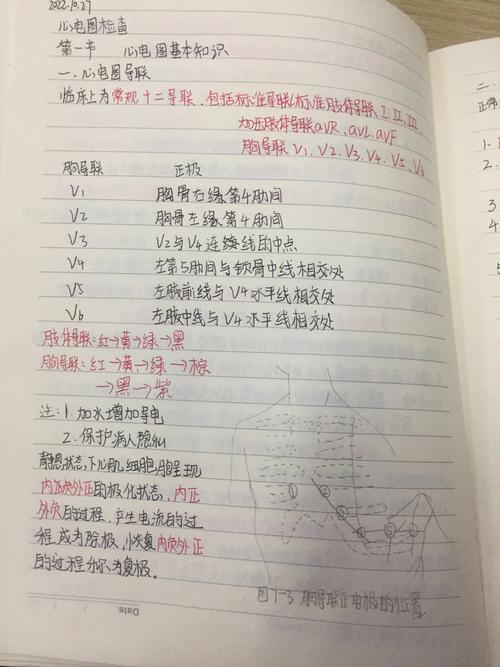 2022.10.27
心电图检查
第一节 心电图基本知识
一、心电图导联
临床上为常规十二导联,包括标准导联(标准肢体导联Ⅰ、Ⅱ、Ⅲ
加压肢体导联aVR、aVL、aVF
胸导联V1、V2、V3、V4、V5、V6
胸导联 正极
V1 胸骨右缘第4肋间
V2 胸骨左缘第4肋间
V3 V2与V4连线的中点
V4 左第5肋间与锁骨中线相交处
V5 左腋前线与V4水平线相交处
V6 左腋中线与V4水平线相交处
肢体导联:红→黄→绿→黑
胸导联:红→黄→绿→棕
→黑→紫
注:1.加水增加导电
2.保护病人隐私
静息状态下心肌细胞胞呈现
内负外正的极化状态,内正
外负的过程,产生电流的过
程,成为除极,恢复内负外正
的过程称为复极。
① ② ③
图7-3 胸导联正电极的位置
Date.
二、
正常
1.
2.